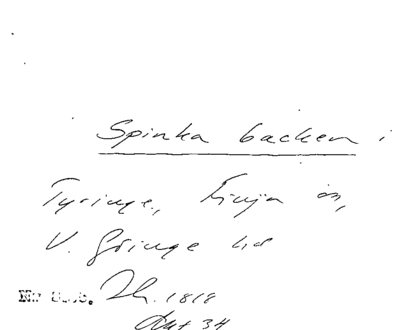 Spinka backen i
Tyringe, Finja sn,
V. Göinge hd
1818
34